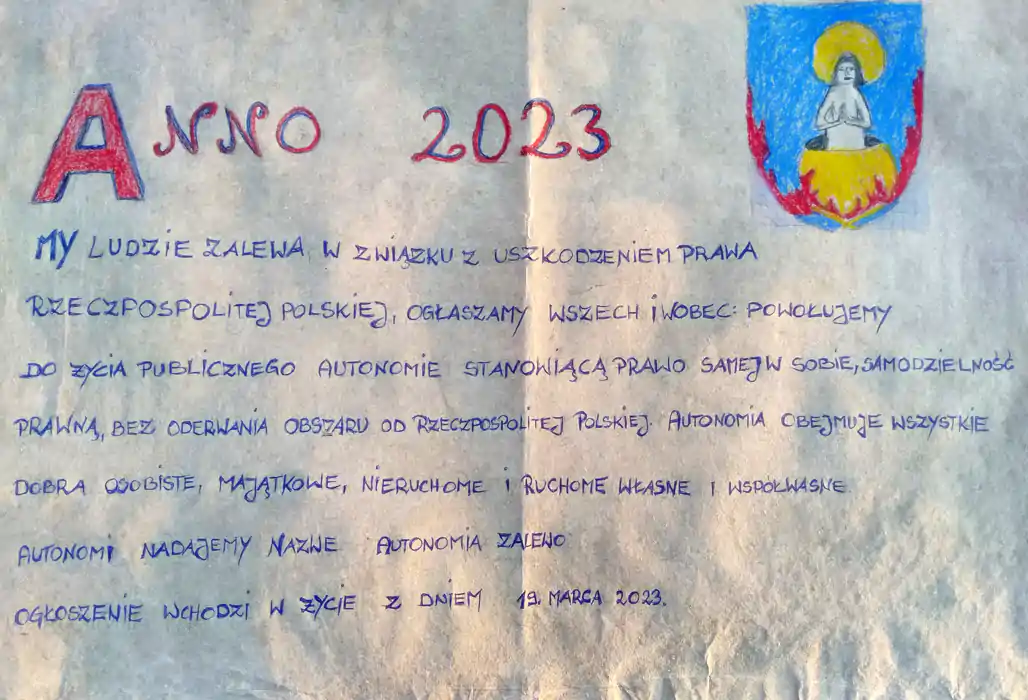 ANNO 2023
MY LUDZIE ZALEWA, W ZWIĄZKU Z USZKODZENIEM PRAWA
RZECZPOSPOLITEJ POLSKIEJ, OGŁASZAMY WSZECH I WOBEC: POWOŁUJEMY
DO ŻYCIA PUBLICZNEGO AUTONOMIE STANOWIĄCĄ PRAWO SAMEJ W SOBIE, SAMODZIELNOŚĆ
PRAWNĄ, BEZ ODERWANIA OBSZARU OD RZECZPOSPOLITEJ POLSKIEJ. AUTONOMIA OBEJMUJE WSZYSTKIE
DOBRA OSOBISTE, MAJĄTKOWE, NIERUCHOME I RUCHOME WŁASNE I WSPÓŁWASNE.
AUTONOMI NADAJEMY NAZWE AUTONOMIA ZALEWO
OGŁOSZENIE WCHODZI W ŻYCIE Z DNIEM 19. MARCA 2023.